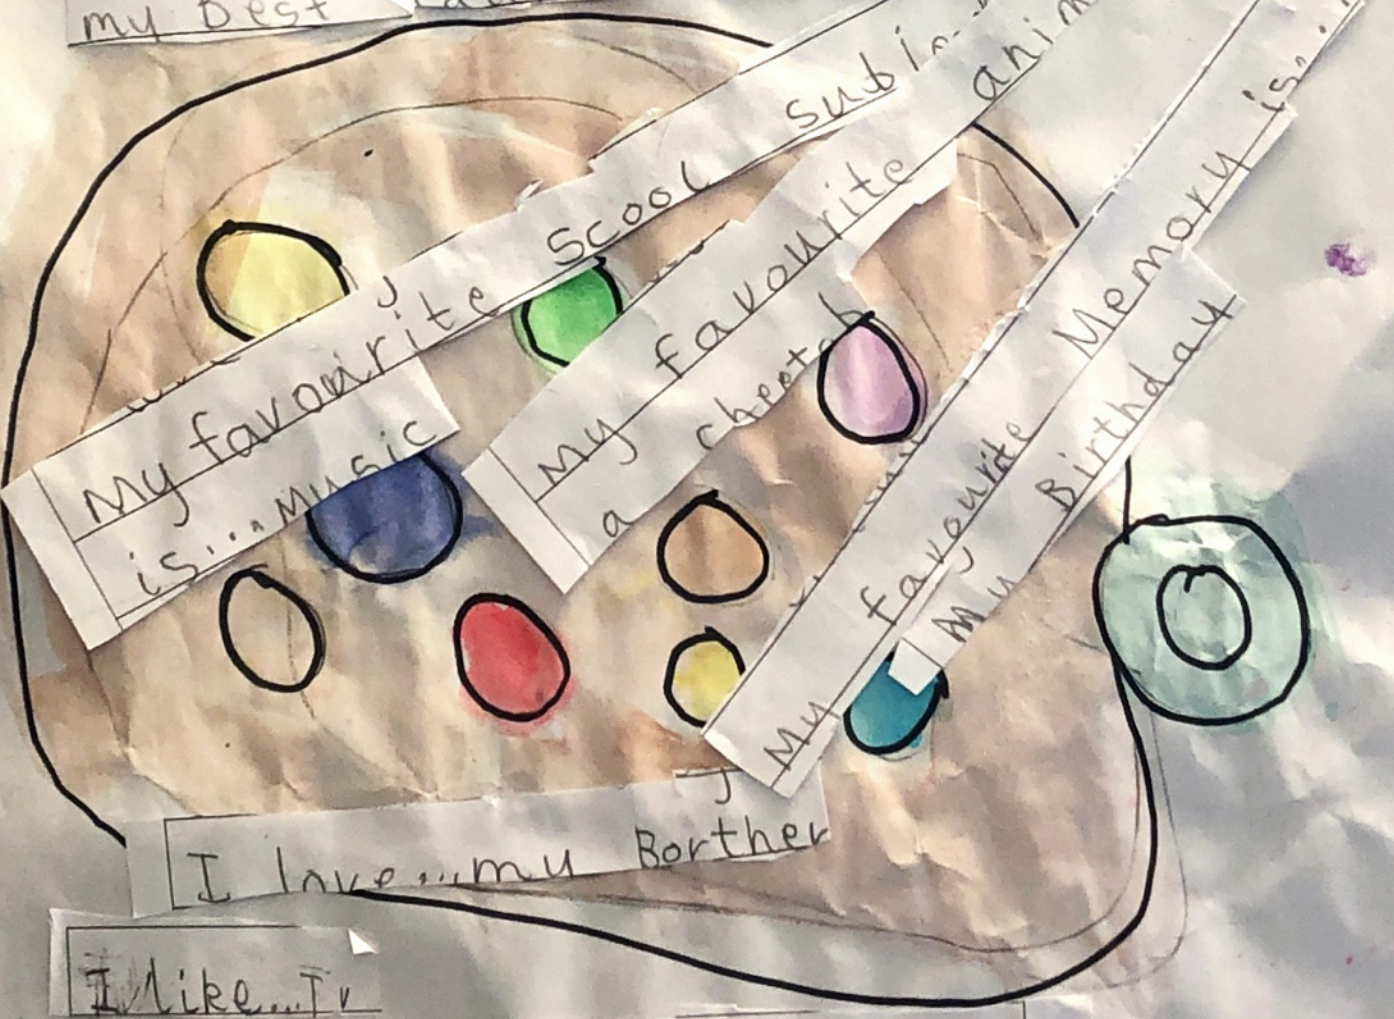 my best
My favourite Scool
is... Music
My favourite
a cheetah
My favourite Memory is...
My Birthday
I love...my Borther
I like...Tv